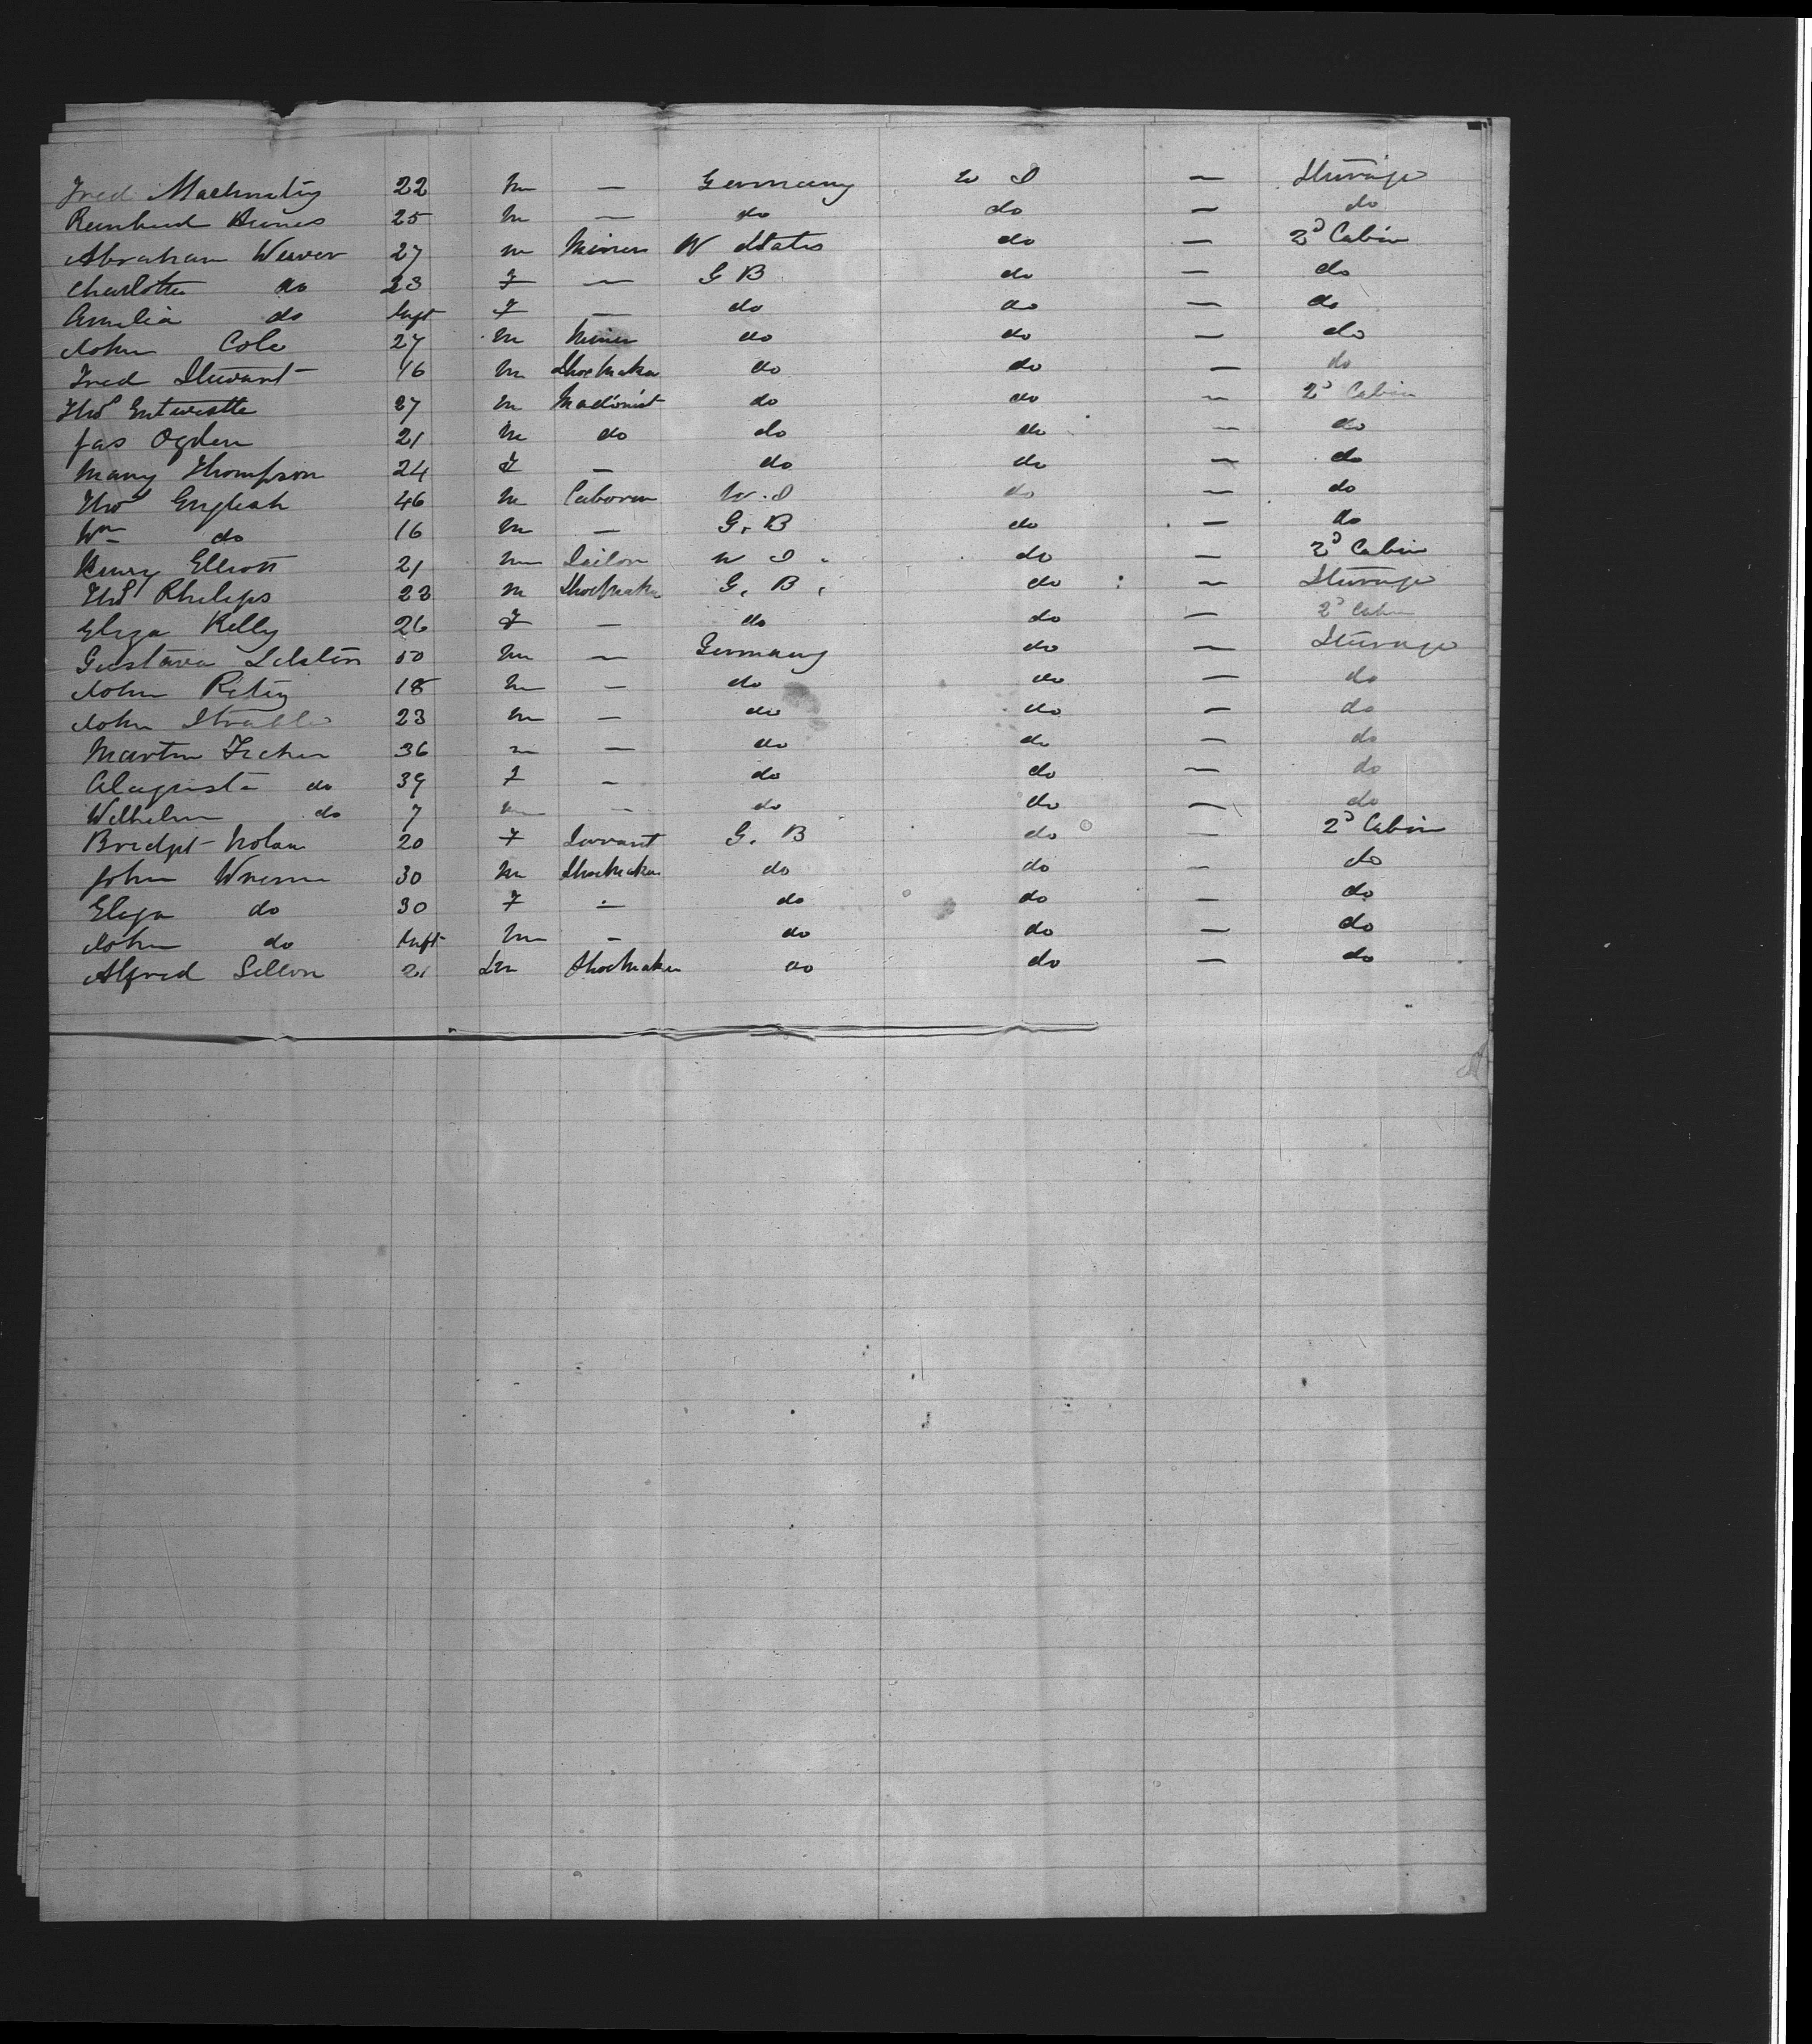 Fred 22 m — Germany U S — Steerage
25 m — do do — do
Abraham Wever 27 m Miner U States do — 2d Cabin
Charlotte do 23 F — G B do — do
Amelia do Inft F — do do — do
John Cole 27 m Miner do do — do
Fred Stewart 16 m Shoemaker do do — do
Thos Entwistle 27 m Machinist do do — 2d Cabin
Jas Ogden 21 m do do do — do
Mary Thompson 24 F — do do — do
Thos English 46 m Laborer U.S do — do
Wm do 16 m — G. B do — do
Henry Elliott 21 m Sailor U S. do — 2d Cabin
Thos Philips 23 m Shoemaker G. B. do — Steerage
Eliza Kelly 26 F — do do — 2d Cabin
Gustava 50 m — Germany do — Steerage
John 18 m — do do — do
John 23 m — do do — do
Martin 36 m — do do — do
Augusta do 39 F — do do — do
Wilhelm do 7 m — do do — do
Bridgt Nolan 20 F Servant G. B do — 2d Cabin
John 30 m Shoemaker do do — do
Eliza do 30 F — do do — do
John do Inft m — do do — do
Alfred 21 m Shoemaker do do — do